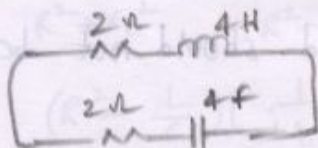 2 Ω 4 H
2 Ω 4 f